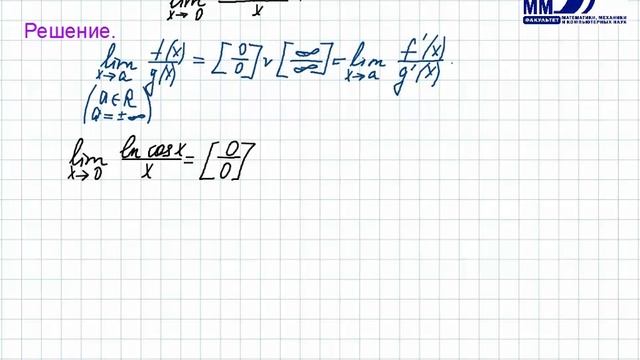 lim x→0 x
ММ
ФАКУЛЬТЕТ МАТЕМАТИКИ, МЕХАНИКИ И КОМПЬЮТЕРНЫХ НАУК
Решение.
lim x→a f(x)/g(x) = [0/0] v [∞/∞] = lim x→a f'(x)/g'(x).
(a∈R a=±∞)
lim x→0 ln cosx/x = [0/0]